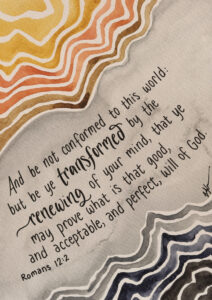 And be not conformed to this world:
but be ye transformed by the
renewing of your mind, that ye
may prove what is that good,
and acceptable, and perfect, will of God.
Romans 12:2